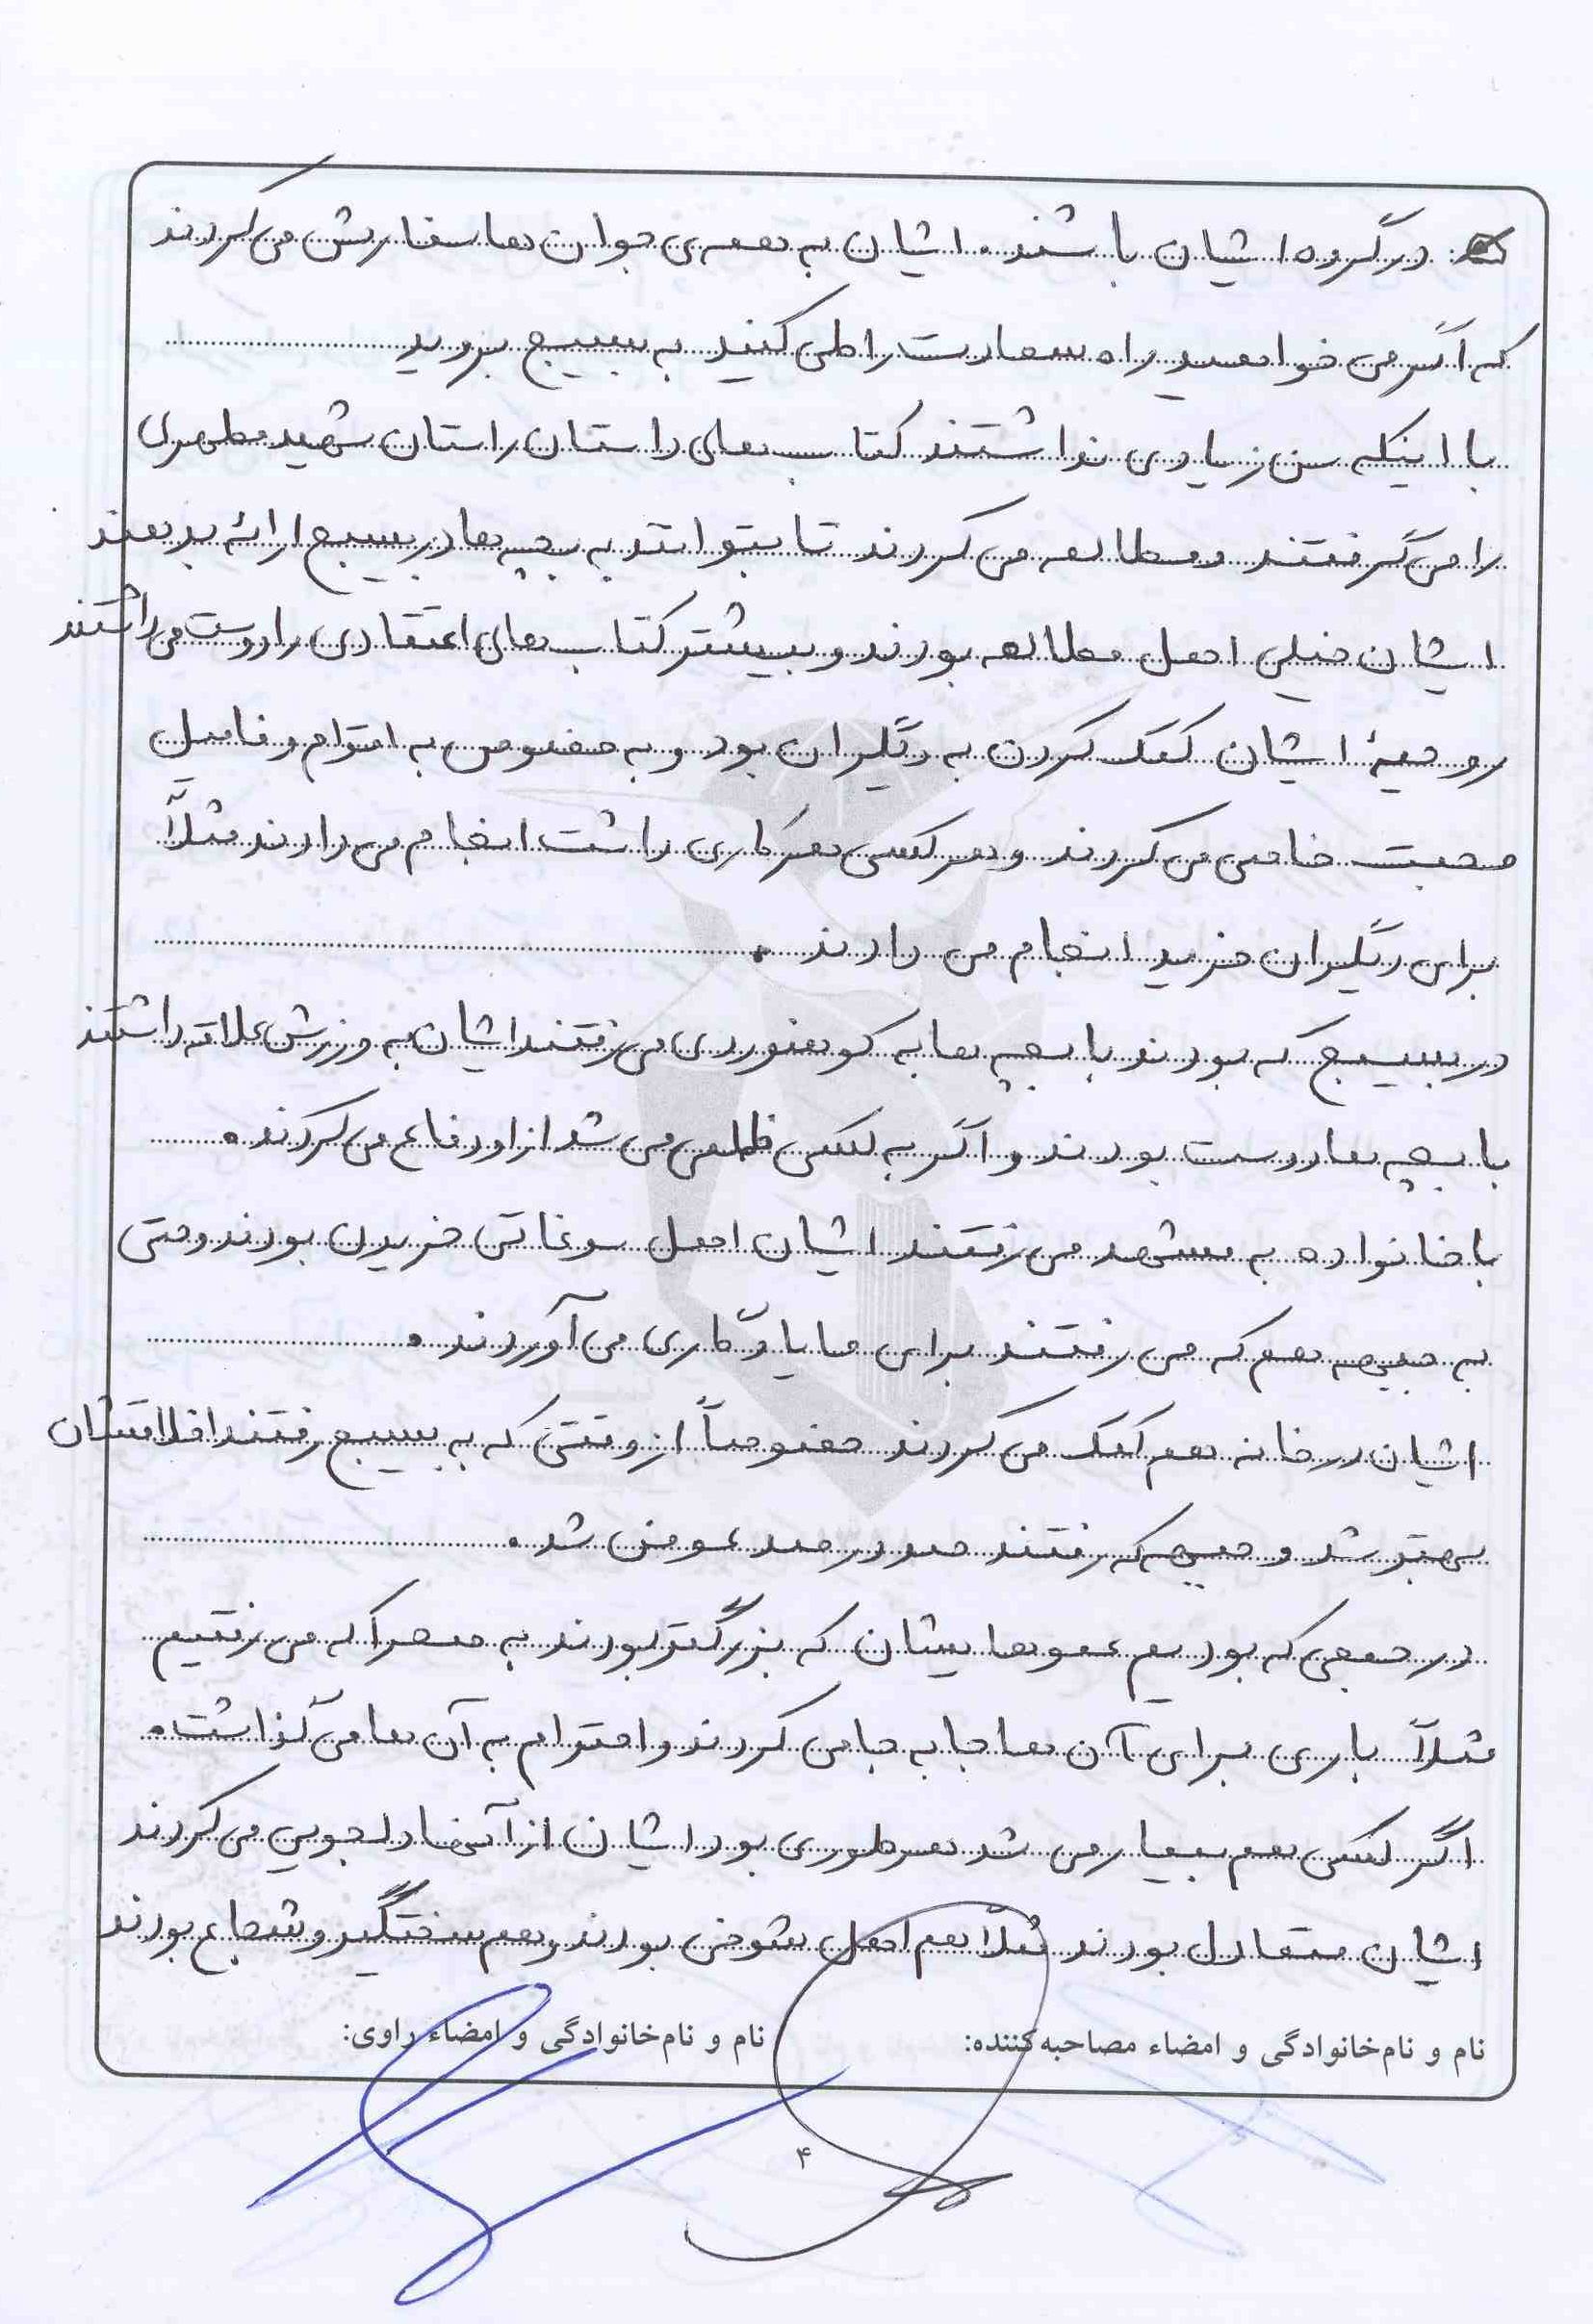 در گروه ایشان باشند. ایشان به همه ی جوان ها سفارش می کردند
که اگر می خواهید راه سعادت را طی کنید به بسیج بروید
با اینکه سن زیادی نداشتند کتاب های داستان راستان شهید مطهری
را می گرفتند و مطالعه می کردند تا بتوانند به بچه ها در بسیج ارائه بدهند
ایشان خیلی اهل مطالعه بودند و بیشتر کتاب های اعتقادی را دوست می داشتند
روحیهٔ ایشان کمک کردن به دیگران بود و به خصوص به اقوام و فامیل
محبت خاصی می کردند و هر کسی هر کاری داشت انجام می دادند مثلاً
برای دیگران خرید انجام می دادند.
در بسیج که بودند با بچه ها به کوهنوردی می رفتند ایشان به ورزش علاقه داشتند
با بچه ها دوست بودند و اگر به کسی ظلمی می شد از او دفاع می کردند.
با خانواده به مشهد می رفتند ایشان اهل سوغاتی خریدن بودند و حتی
به جبهه هم که می رفتند برای ما یادگاری می آوردند.
ایشان در خانه هم کمک می کردند خصوصاً از وقتی که به بسیج رفتند اخلاقشان
بهتر شد و جبهه که رفتند صد در صد عوض شد.
در جمعی که بودیم عموهایشان که بزرگتر بودند به صحرا که می رفتیم
مثلاً باری برای آن ها جا به جا می کردند و احترام به آن ها می گذاشت.
اگر کسی هم بیمار می شد هر طوری بود ایشان از آنها دلجویی می کردند
ایشان متعادل بودند مثلاً هم اهل شوخی بودند و هم سختگیر و شجاع بودند
نام و نام‌خانوادگی و امضاء مصاحبه‌کننده: نام و نام‌خانوادگی و امضاء راوی:
۴